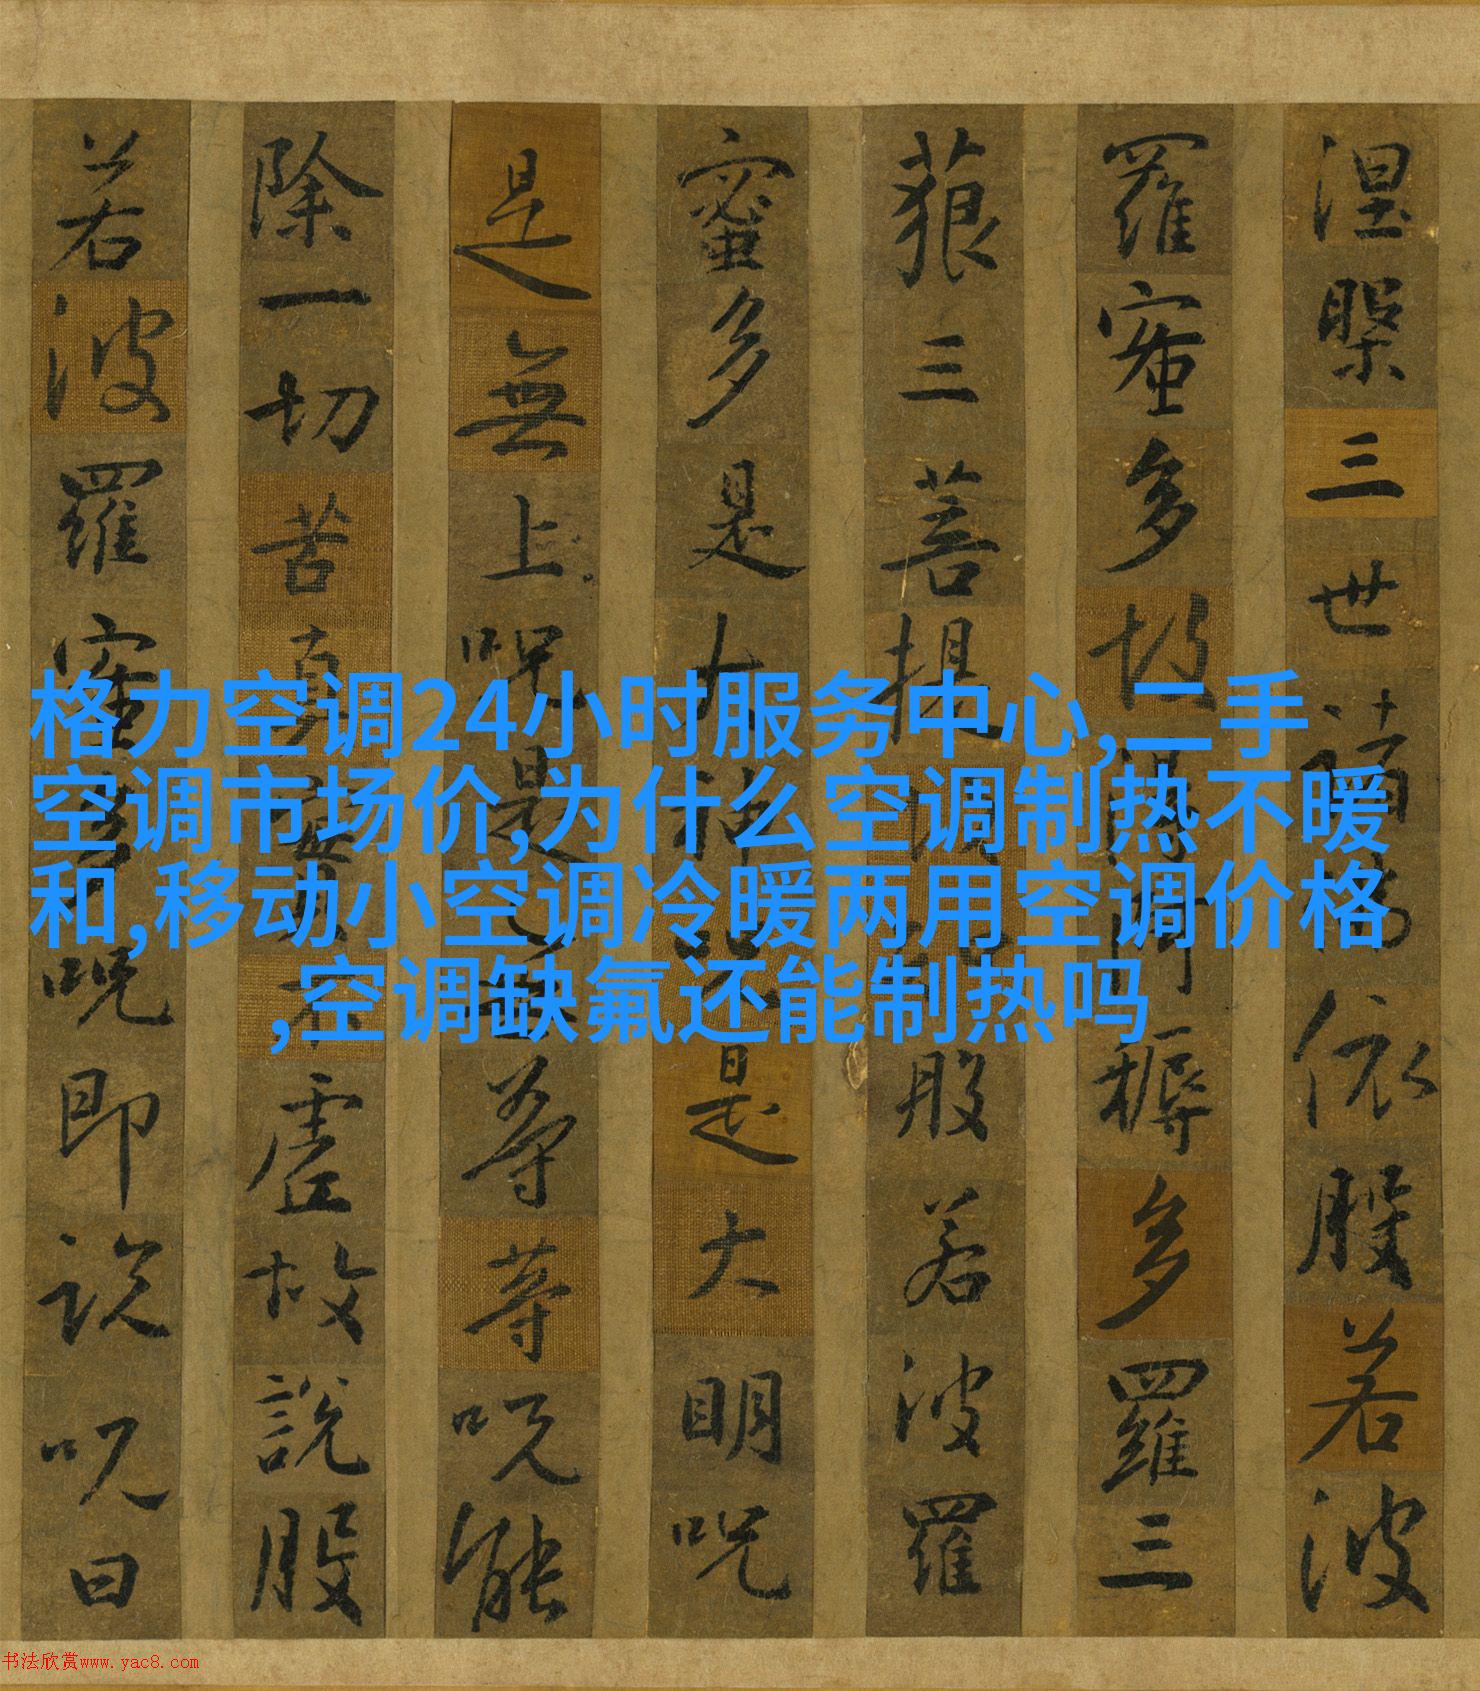 涅槃三世諸佛依般若波
羅蜜多故得阿耨多羅三
藐三菩提故知般若波羅
蜜多是大神呪是大明呪
是無上呪是無等等呪能
除一切苦真實不虛故說般
若波羅蜜多呪即說呪曰
格力空调24小时服务中心,二手
空调市场价,为什么空调制热不暖
和,移动小空调冷暖两用空调价格
,空调缺氟还能制热吗
书法欣赏www.yac8.com